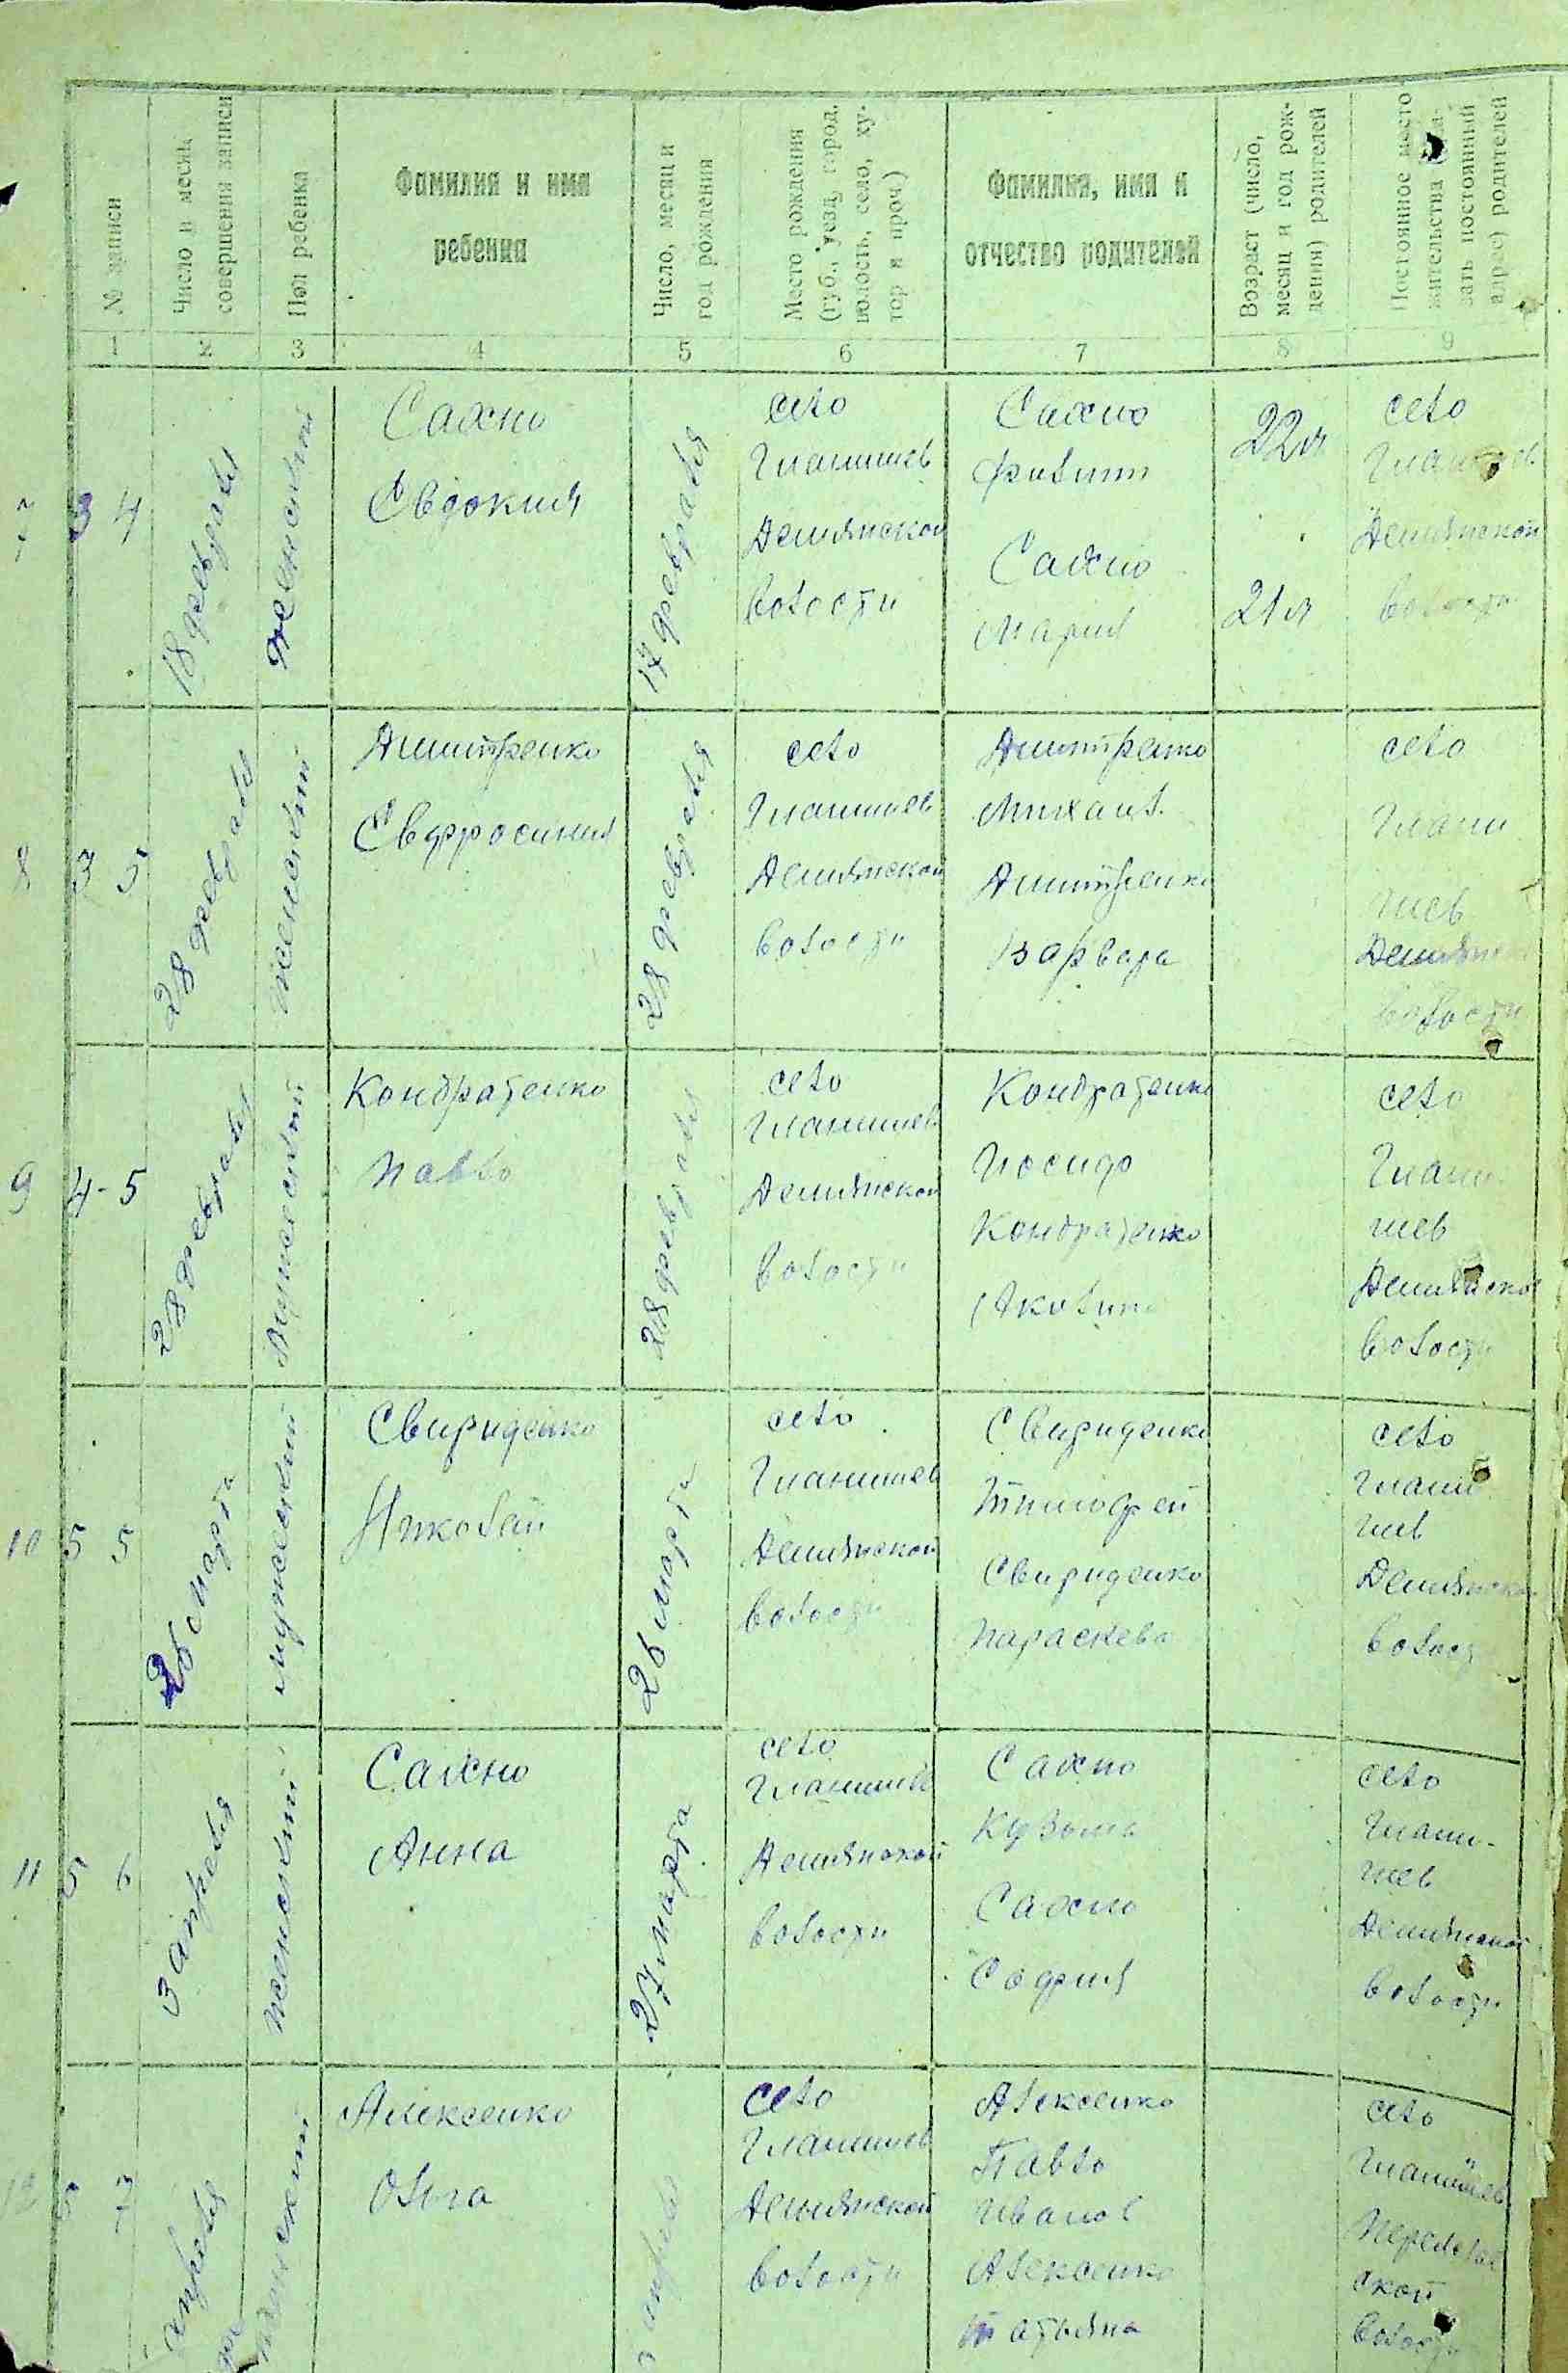 № записи
Число и месяц
совершения записи
Пол ребенка
Фамилия и имя
ребенка
Число, месяц и
год рождения
Место рождения
(губ., уезд, город,
волость, село, ху-
тор и проч.)
Фамилия, имя и
отчество родителей
Возраст (число,
месяц и год рож-
дения) родителей
Постоянное место
жительства
зать постоянный
адрес) родителей
1
2
3
4
5
6
7
8
9
7
3 4
18 февраля
женский
Сахно
Евдокия
17 февраля
село
Гланишев
Демянской
волости
Сахно
Филипп
Сахно
Мария
22 л
21 л
село
Демянской
волости
8
3 5
28 февраля
женский
Дмитренко
Евфросиния
28 февраля
село
Гланишев
Демянской
волости
Дмитренко
Михаил
Дмитренко
Варвара
село
Глани
шев
волости
9
4-5
28 февраля
Мужеский
Кондратенко
Павло
28 февраля
село
Гланишев
Демянской
волости
Кондратенко
Иосиф
Кондратенко
Акылина
село
Глани-
шев
Демянской
волости
10
5 5
26 марта
мужеский
Свириденко
Николай
26 марта
село
Гланишев
Демянской
волости
Свириденко
Тимофей
Свириденко
Параскева
село
Глани
шев
Демянской
волост
11
5 6
3 апреля
женский
Сахно
Анна
27 марта
село
Гланишев
Демянской
волости
Сахно
Кузьма
Сахно
София
село
Глани-
шев
Демянской
волости
12
5 7
апреля
женский
Алексенко
Ольга
село
Гланишев
Демянской
волости
Алексенко
Павло
Иванов
Алексенко
Татьяна
село
Гланишев
ской
волости